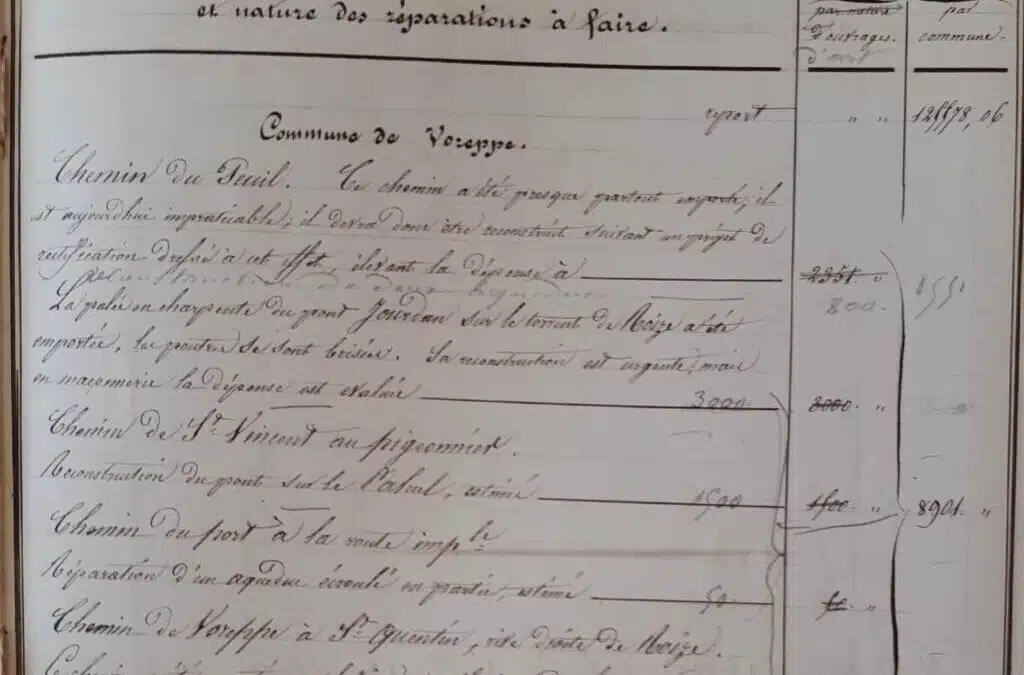 et nature des réparations à faire.
par nature d'ouvrages.
par commune.
report " " 125578,06
Commune de Voreppe.
Chemin du Peuil. Ce chemin a été presque partout emporté; il
est aujourdhui impraticable; il devra donc être reconstruit suivant un projet de
rectification dressé à cet effet, élevant la dépense à 2351. "
800.
La palée en charpente du pont Jourdan sur le torrent de Roize a été
emportée, les poutres se sont brisées. Sa reconstruction est urgente, mais
en maçonnerie la dépense est évaluée 3000 3000. "
Chemin de St Vincent au pigeonnier.
Reconstruction du pont sur le Palluel, estimé 1500 1500. " 8901. "
Chemin du port à la route imple
Réparation d'un aqueduc écroulé en partie, estimé 50. 50. "
Chemin de Voreppe à St Quentin, rive droite de Roize.